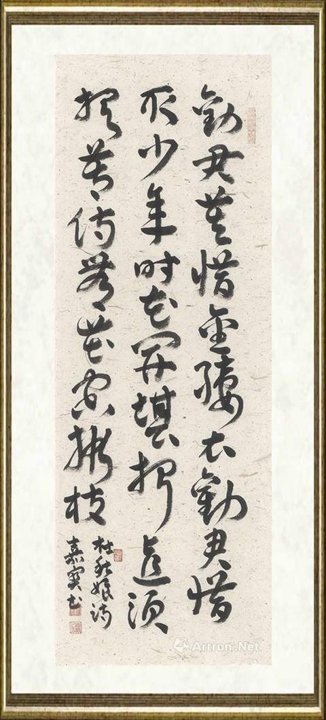 勸君莫惜金縷衣勸君惜
取少年时花開堪折直須
折莫待無花空折枝
杜秋娘诗
嘉實书
Artron.Net